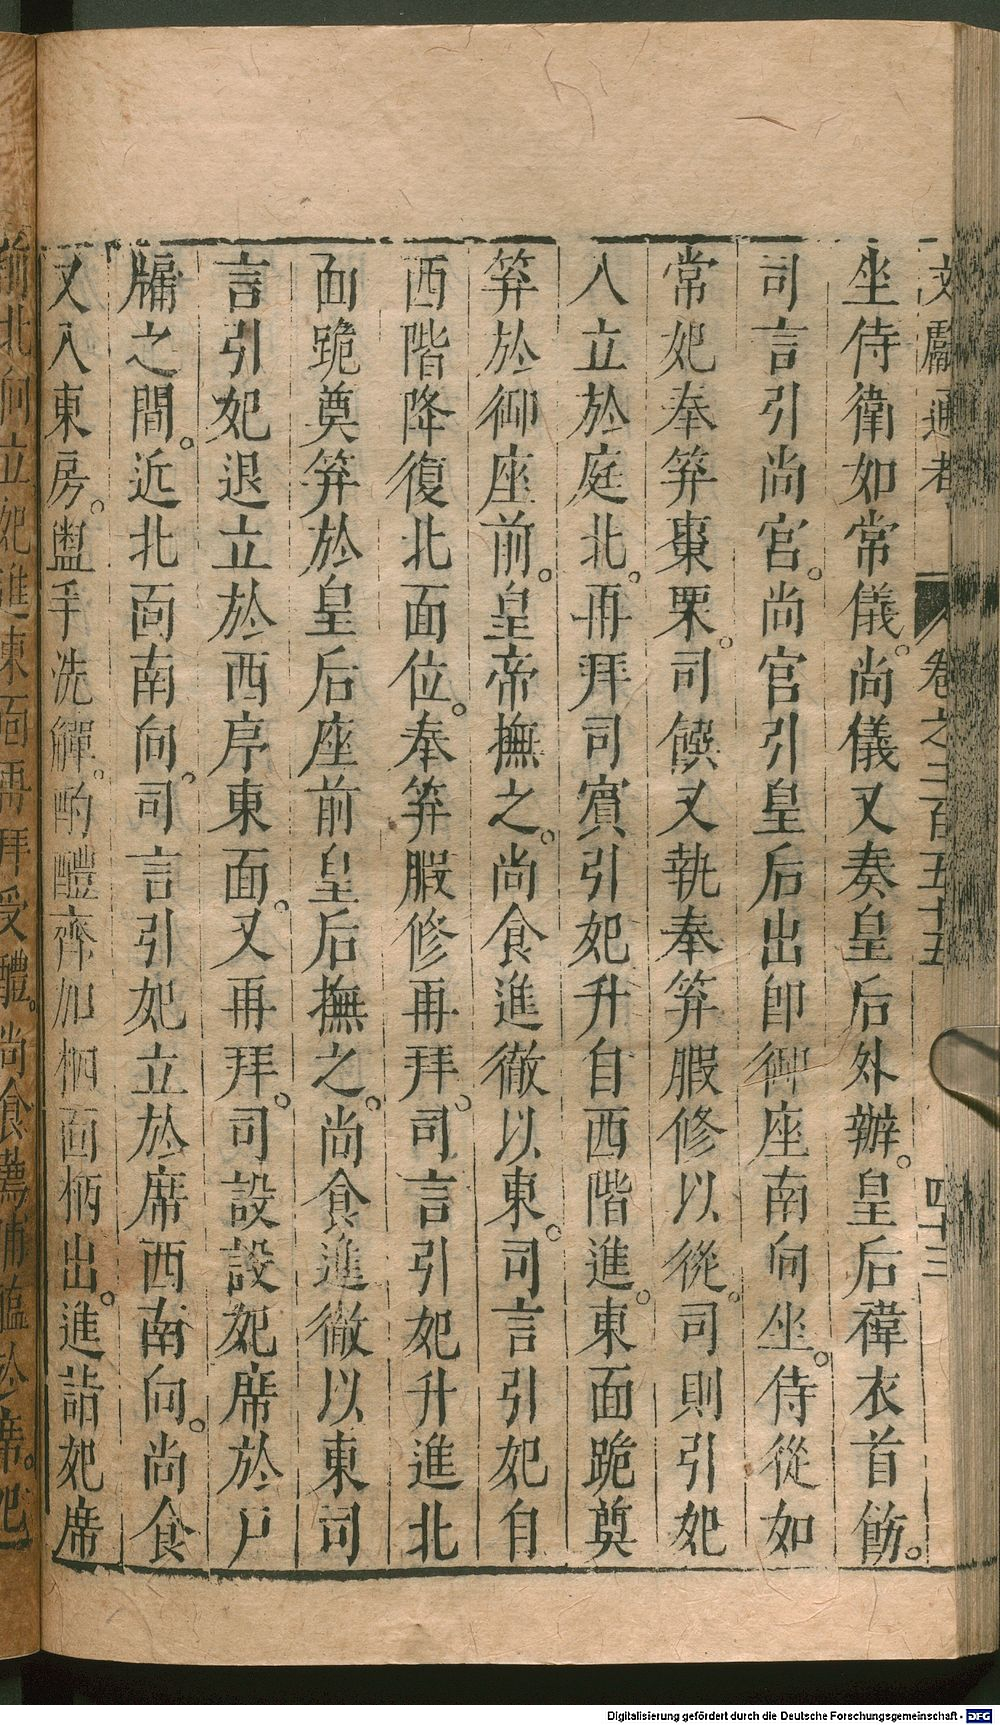 文獻通考 卷之二百五十五 四十三
坐侍衛如常儀。尚儀又奏皇后外辦。皇后褘衣首飾。
司言引尚宮。尚宮引皇后出卽御座南向坐。侍從如
常妃奉笲棗栗。司饌又執奉笲腶修以從。司則引妃
入立於庭北。再拜司賓引妃升自西階進。東面跪奠
笲於御座前。皇帝撫之。尚食進徹以東。司言引妃自
西階降復北面位。奉笲腶修再拜。司言引妃升進北
面跪奠笲於皇后座前皇后撫之。尚食進徹以東司
言引妃退立於西序東面。又再拜。司設設妃席於戶
牖之間。近北面南向。司言引妃立於席西南向。尚食
又入東房。盥手洗觶。酌醴齊加柶面柄出。進詣妃席
前北向立妃進東面再拜受醴。尚食薦脯醢於席。妃
Digitalisierung gefördert durch die Deutsche Forschungsgemeinschaft - DFG